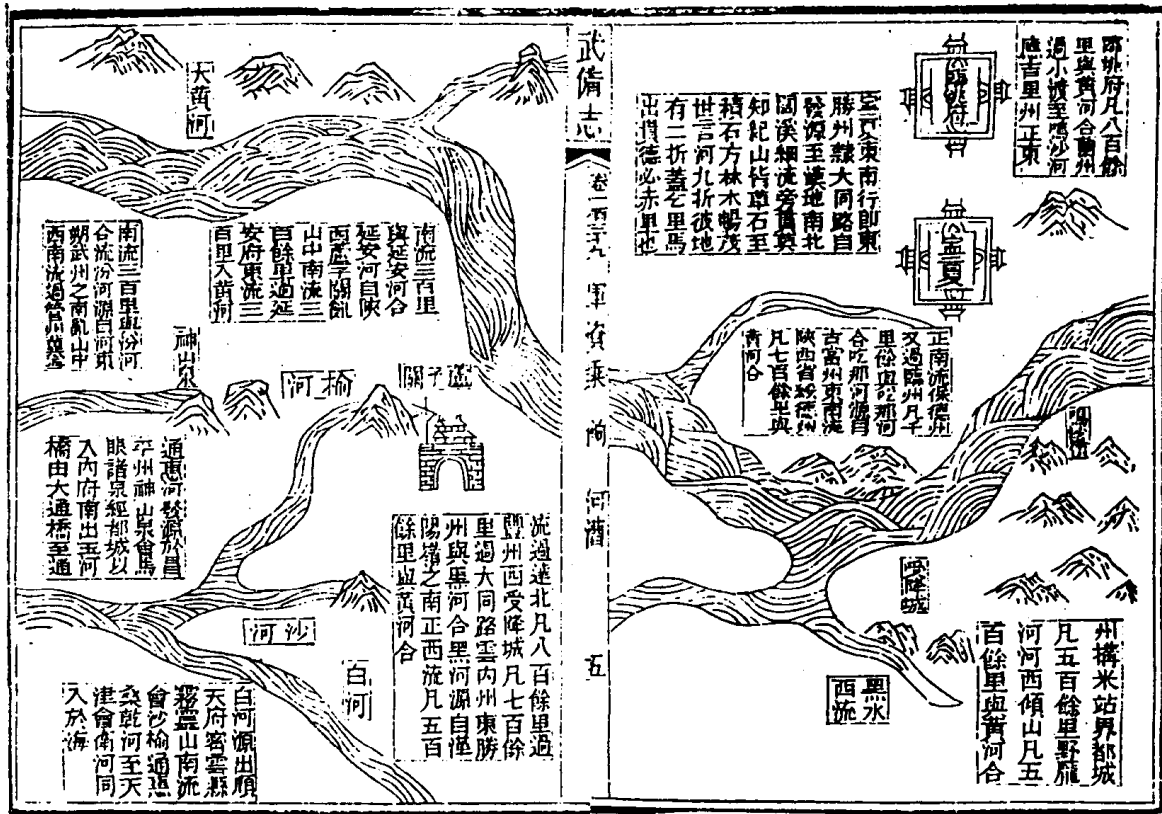 臨洮府凡八百餘
里與黃河合蘭州
過小渡至鳴沙河
應吉里州正東
臨洮府
寧夏
至寧夏東南行即東
勝州隸大同路自
發源至漢地南北
澗溪細流旁貫莫
知紀山皆草石至
積石方林木暢茂
世言河九折彼地
有二折蓋乞里馬
出貴德必赤里也
正南流保德州
又過臨州凡千
里餘與吃那河
合吃那河源自
古富州東南流
陝西省綏德州
凡七百餘里與
黃河合
受降城
黑水
西流
州構米站界都城
凡五百餘里野龐
河河西傾山凡五
百餘里與黃河合
武備志
卷一百三十九
軍資乘
餉
河漕
五
大黃河
南流三百里
與延安河合
延安河自陝
西蘆子關亂
山中南流三
百餘里過延
安府東流三
百里入黃河
南流三百里與汾河
合流汾河源自河東
朔武州之南亂山中
西南流過管州冀寧
神山泉
榆河
蘆子關
通惠河發源於昌
平州神山泉會馬
眼諸泉經都城以
入內府南出玉河
橋由大通橋至通
流過達北凡八百餘里過
豐州西受降城凡七百餘
里過大同路雲內州東勝
州與黑河合黑河源自漁
陽嶺之南正西流凡五百
餘里與黃河合
沙河
白河
白河源出順
天府密雲縣
霧靈山南流
會沙榆通惠
桑乾河至天
津會衛河同
入於海